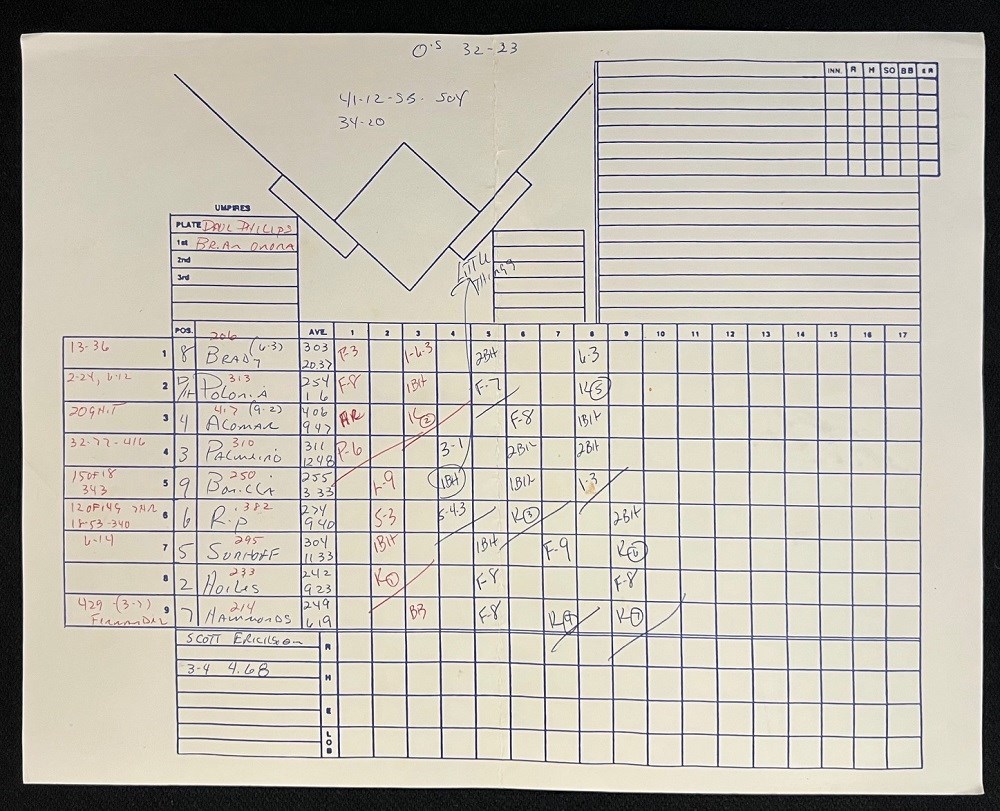 O's 32-23
41-12-SB-SOY
34-20
INN. R H SO BB ER
UMPIRES
PLATE
1st BRIAN
2nd
3rd
LITTLE
THINGS
POS. AVE. 1 2 3 4 5 6 7 8 9 10 11 12 13 14 15 16 17
13-36 1 8 206 (6-3) BRADY 303 2037 P-3 1-6-3 2BH 6-3
2-24, 6-12 2 313 POLONIA 254 16 F-8 1BH F-7 K5
3 4 417 (9-2) ALOMAR 406 947 HR K2 F-8 1BH
32-77-416 4 3 310 PALMEIRO 311 1248 P-6 3-1 2BH 2BH
15 OF 18
343 5 9 250 BONILLA 255 333 1BH 1BH 1-3
12 OF 149
18-53-340 6 6 .382 RIP 274 940 5-3 5-4-3 K3 2BH
6-14 7 5 295 SURHOFF 304 1133 1BH 1BH F-9 K6
8 2 233 HOILES 242 923 K1 F-8 F-8
429-(3-7)
FERNANDEZ 9 7 214 HAMMONDS 249 619 BB F-8 K4 K7
SCOTT ERICKSON R
3-4 4.68 H
E
LOB